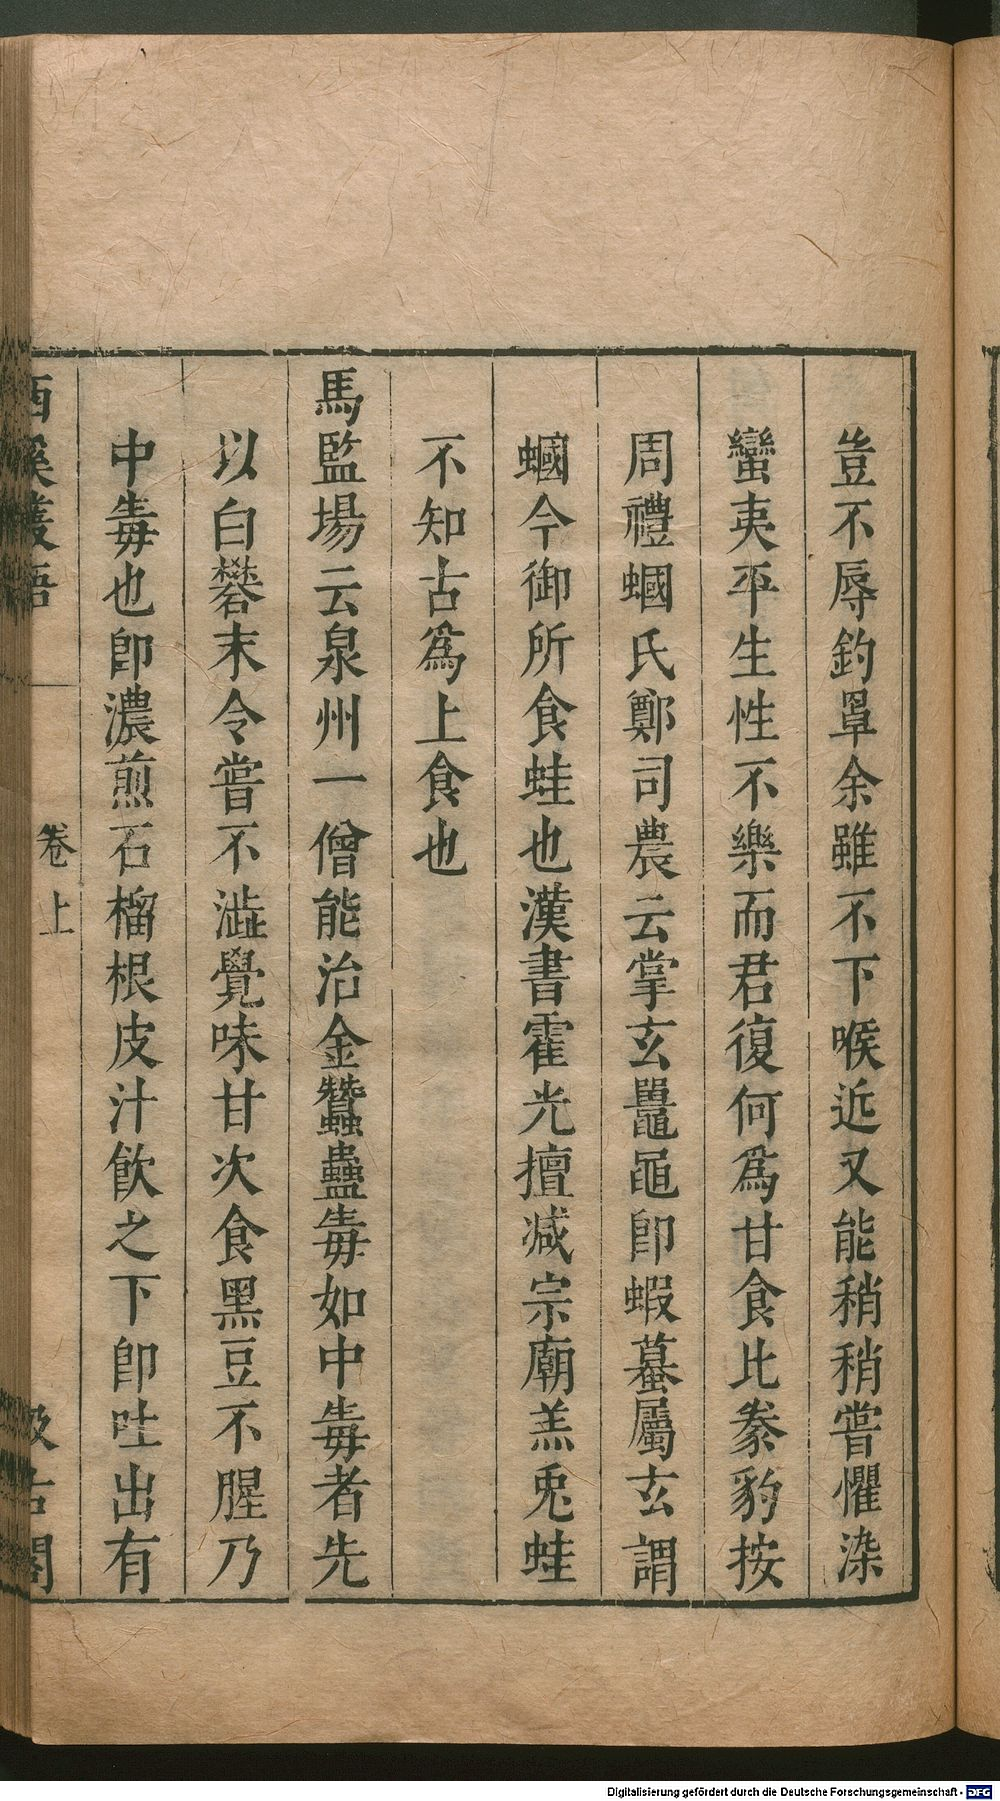 豈不辱釣罩余雖不下喉近又能稍稍嘗懼染
蠻夷平生性不樂而君復何爲甘食比豢豹按
周禮蟈氏鄭司農云掌玄鼉黽卽蝦蟇屬玄謂
蟈今御所食蛙也漢書霍光擅减宗廟羔兎蛙
不知古爲上食也
馬監場云泉州一僧能治金蠶蠱毒如中毒者先
以白礬末令嘗不澁覺味甘次食黑豆不腥乃
中毒也卽濃煎石榴根皮汁飲之下卽吐出有
西溪叢語
卷上
汲古閣
Digitalisierung gefördert durch die Deutsche Forschungsgemeinschaft - DFG